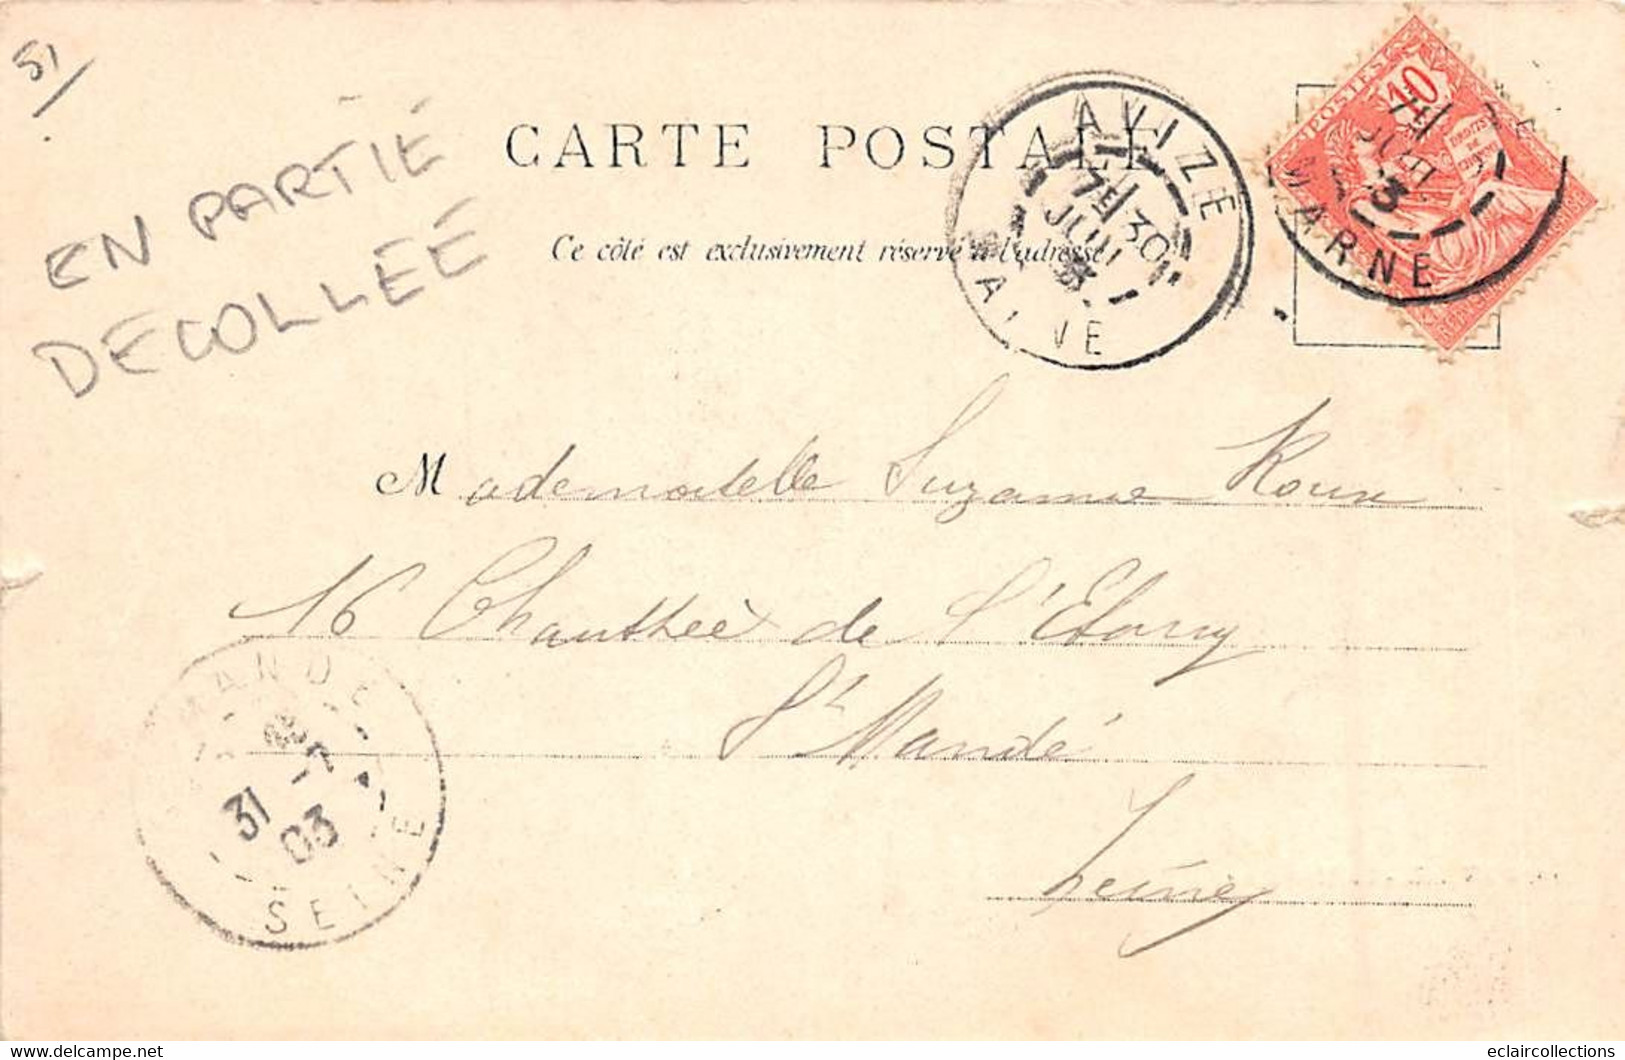 51
EN PARTIE
DECOLLEE
CARTE POSTALE
Ce côté est exclusivement réservé à l'adresse
AVIZE
7E 30
JUIL
MARNE
POSTES
10
DROITS DE
MARNE
Mademoiselle Suzanne Roux
16 Chaussée de l'Etang
St Mandé
Seine
MANDE
31 -7
03
SEINE
eclaircollections